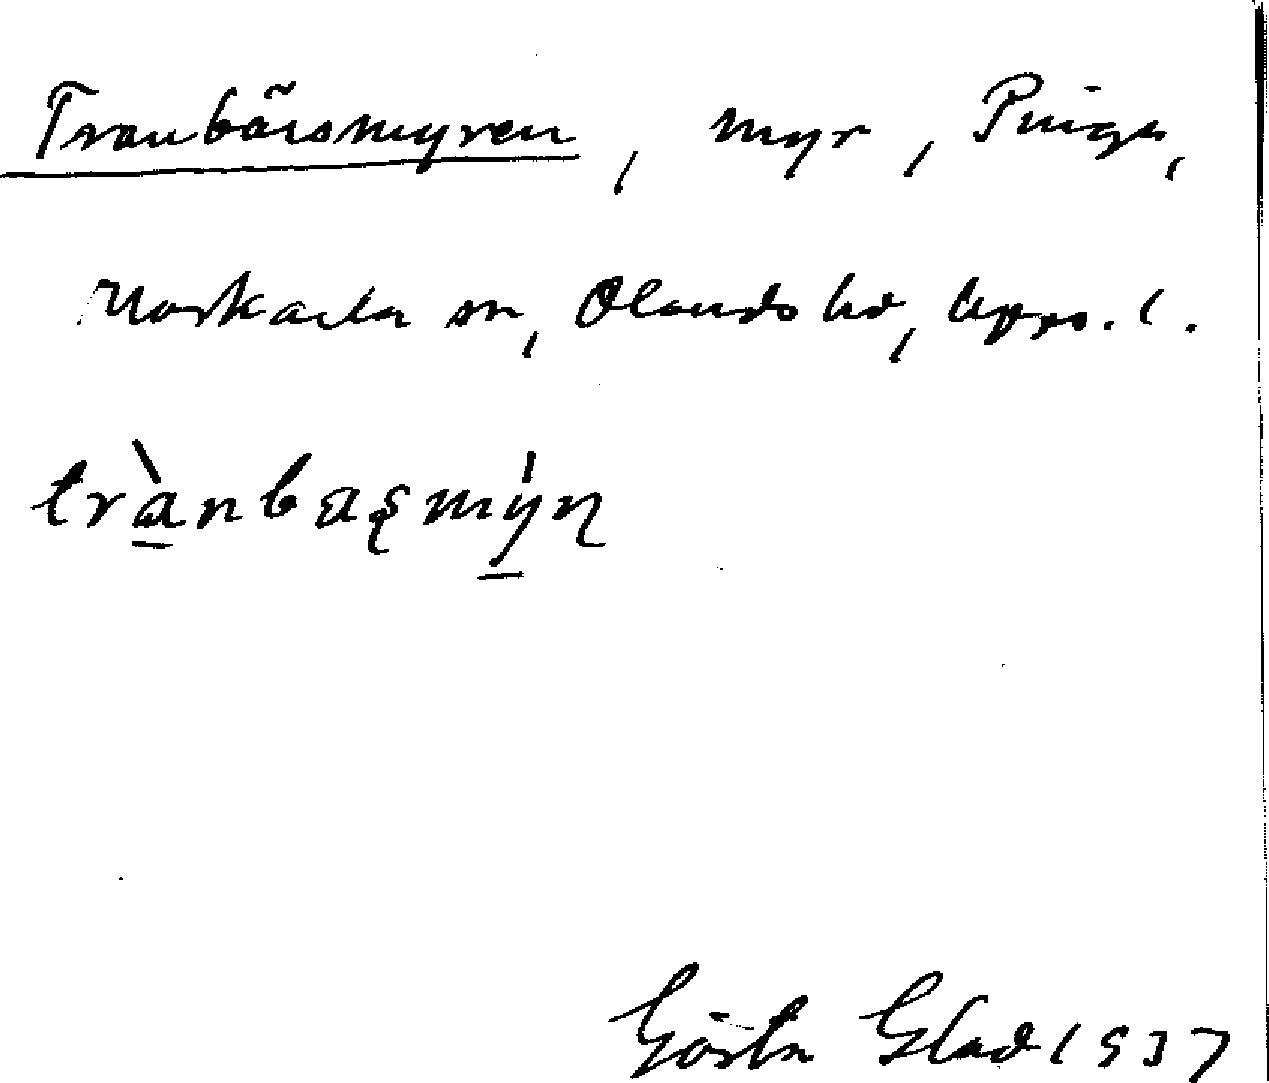 Tranbärsmyren, myr, Pinga,
Morkarla sn, Olands hd, Upps. l.
trànbaʂmýɳ
Gösta Glad 1937